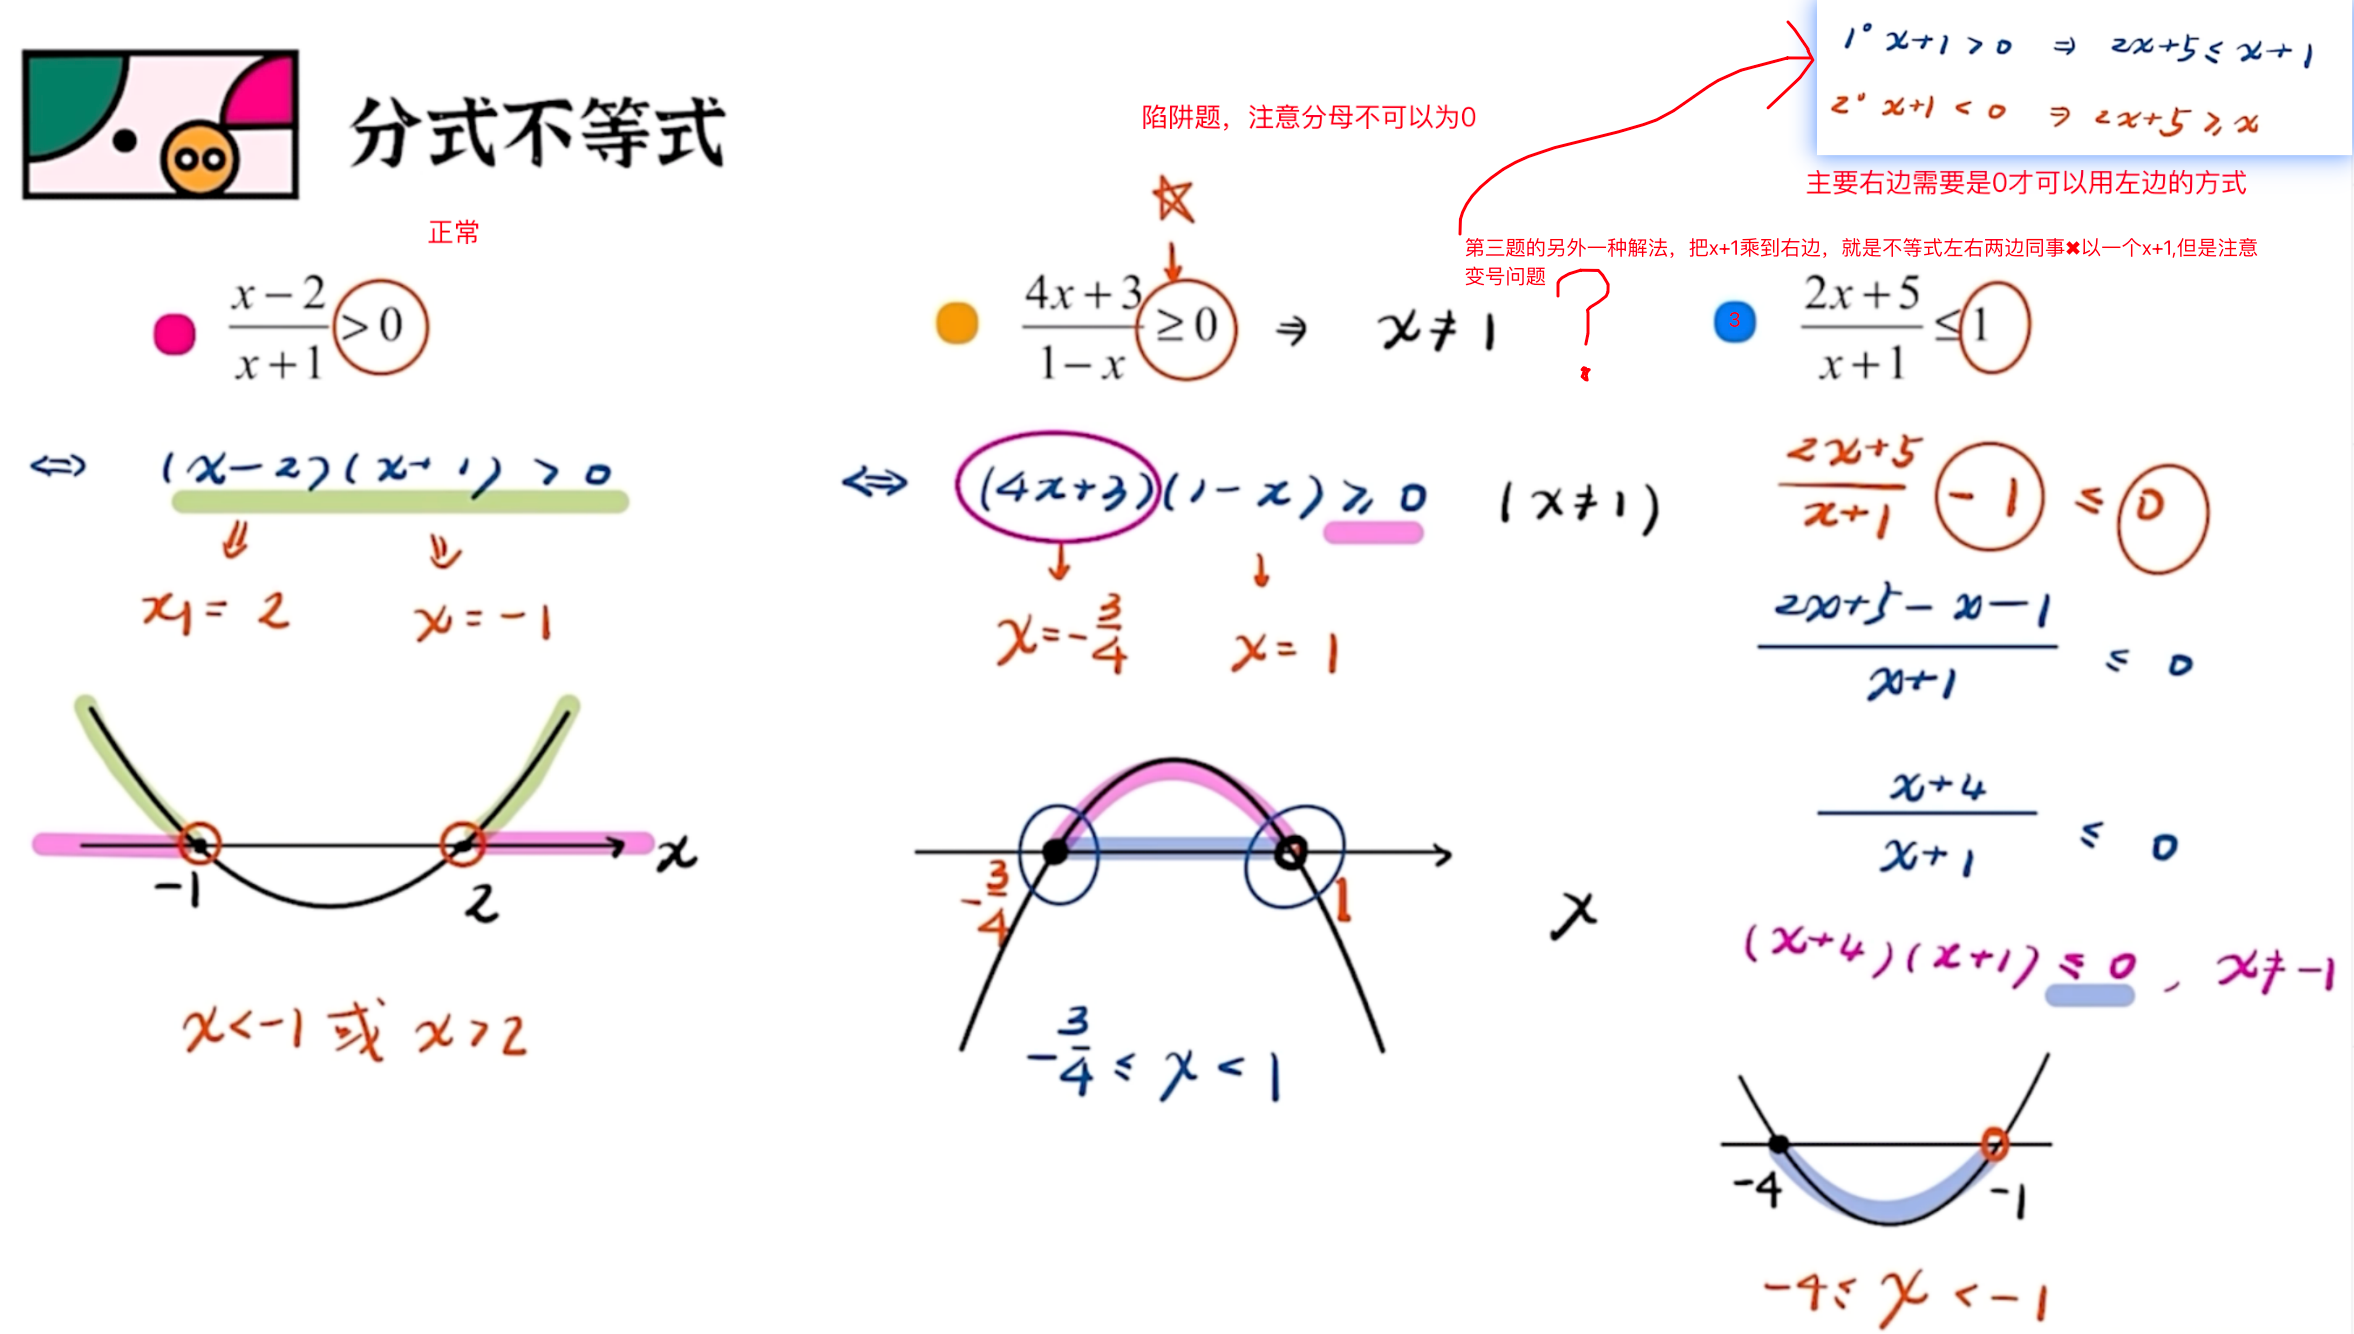 分式不等式
正常
x−2/x+1 > 0
⇔ (x−2)(x+1) > 0
x₁= 2 x = −1
−1 2 x
x<−1 或 x>2
陷阱题，注意分母不可以为0
4x+3/1−x ≥ 0 ⇒ x≠1
⇔ (4x+3)(1−x) ≥ 0 (x≠1)
x=−3/4 x= 1
−3/4 1 x
−3/4 ≤ x < 1
1° x+1 > 0 ⇒ 2x+5 ≤ x+1
2° x+1 < 0 ⇒ 2x+5 ≥ x
主要右边需要是0才可以用左边的方式
第三题的另外一种解法，把x+1乘到右边，就是不等式左右两边同事✖以一个x+1,但是注意
变号问题 ?
3 2x+5/x+1 ≤ 1
2x+5/x+1 − 1 ≤ 0
2x+5−x−1/x+1 ≤ 0
x+4/x+1 ≤ 0
(x+4)(x+1) ≤ 0 , x≠−1
−4 −1
−4 ≤ x < −1